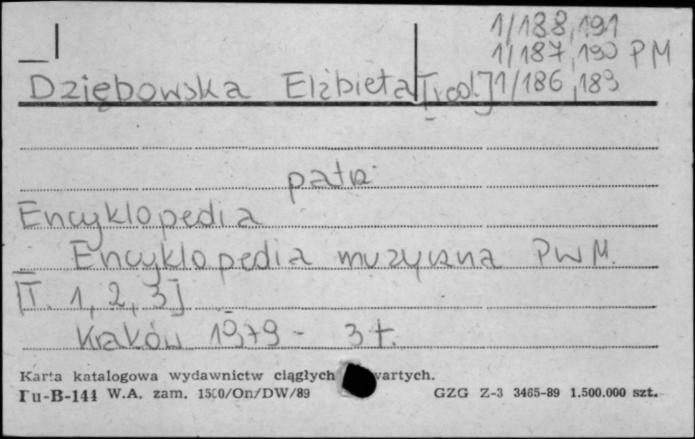 1/188, 191
1/187, 190 PM
Dziębowska Elżbieta [red.] 1/186, 189
patrz
Encyklopedia
Encyklopedia muzyczna PWM.
[T. 1, 2, 3]
Kraków 1979 - 3 t.
Karta katalogowa wydawnictw ciągłych wartych.
Tu-B-144 W.A. zam. 1500/On/DW/89 GZG Z-3 3465-89 1.500.000 szt.